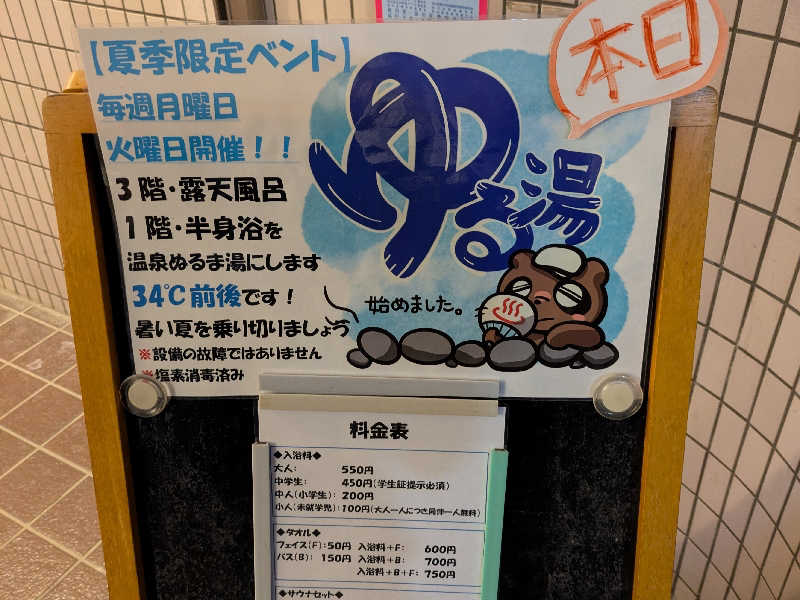 【夏季限定ベント】
毎週月曜日
火曜日開催！！
3階・露天風呂
1階・半身浴を
温泉ぬるま湯にします
34℃前後です！
暑い夏を乗り切りましょう
※設備の故障ではありません
※塩素消毒済み
本日
ゆる湯
始めました。
料金表
◆入浴料◆
大人： 550円
中学生： 450円(学生証提示必須)
中人(小学生)： 200円
小人(未就学児)：100円(大人一人につき同伴一人無料)
◆タオル◆
フェイス(F)：50円 入浴料＋F： 600円
バス(B)： 150円 入浴料＋B： 700円
入浴料＋B＋F： 750円
◆サウナセット◆